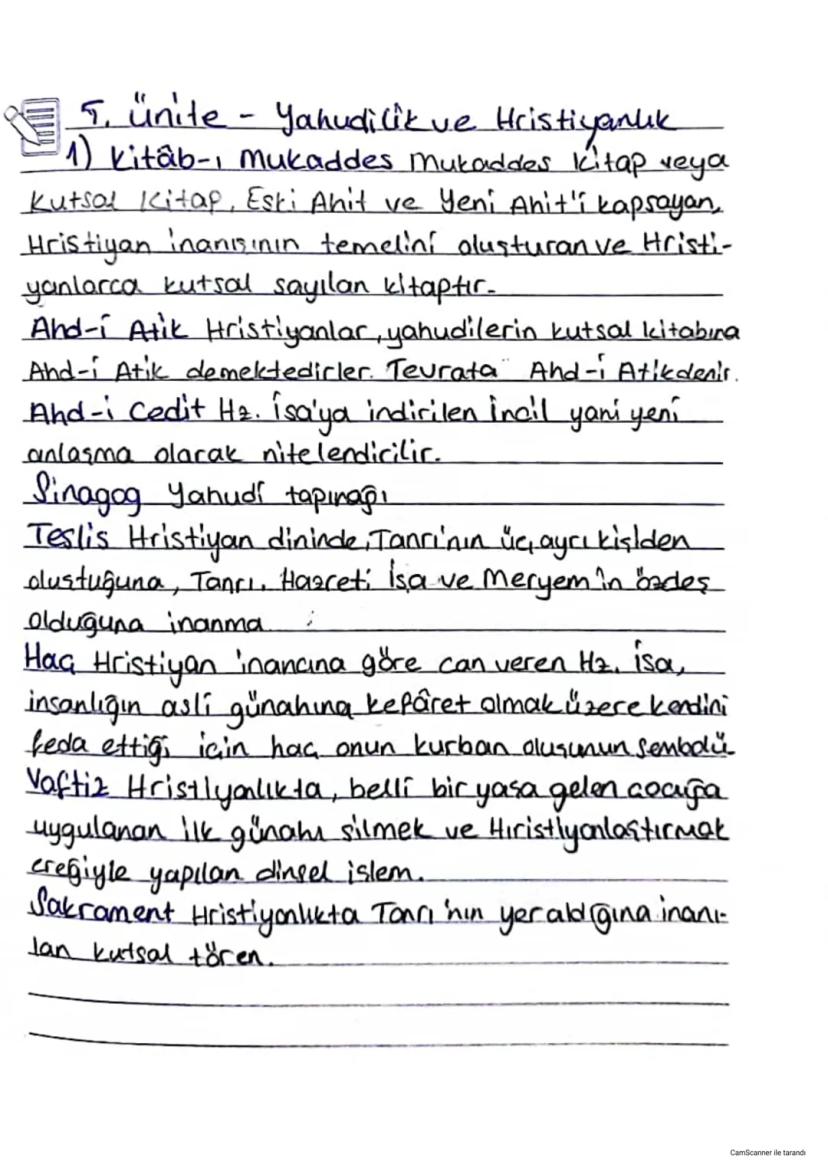 5. Ünite - Yahudilik ve Hristiyanlık
1) Kitâb-ı Mukaddes Mukaddes Kitap veya
Kutsal Kitap, Eski Ahit ve Yeni Ahit'i kapsayan,
Hristiyan inanışının temelini oluşturan ve Hristi-
yanlarca kutsal sayılan kitaptır.
Ahd-i Atik Hristiyanlar, yahudilerin kutsal kitabına
Ahd-i Atik demektedirler. Tevrata Ahd-i Atik denir.
Ahd-i Cedit Hz. İsa'ya indirilen İncil yani yeni
anlaşma olarak nitelendirilir.
Sinagog Yahudi tapınağı
Teslis Hristiyan dininde, Tanrı'nın üç ayrı kişiden
oluştuğuna, Tanrı, Hazreti İsa ve Meryem'in özdeş
olduğuna inanma
Haç Hristiyan inancına göre can veren Hz. İsa,
insanlığın asli günahına kefâret olmak üzere kendini
feda ettiği için haç onun kurban oluşunun sembolü
Vaftiz Hristiyanlıkta, belli bir yaşa gelen çocuğa
uygulanan ilk günahı silmek ve Hıristiyanlaştırmak
ereğiyle yapılan dinsel işlem.
Sakrament Hristiyanlıkta Tanrı'nın yer aldığına inanı-
lan kutsal tören.
CamScanner ile tarandı